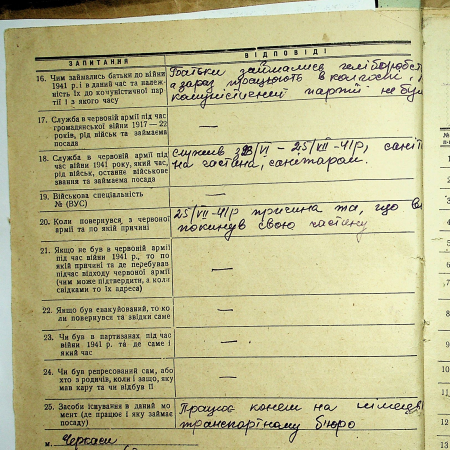 ЗАПИТАННЯ
ВІДПОВІДІ
16. Чим займались батьки до війни
1941 р. і в даний час та належ-
ність їх до комуністичної пар-
тії і з якого часу
Батьки займались хліборобст
а зараз працюють в колгоспі,
комуністичній партії не бул
17. Служба в червоній армії під час
громадянської війни 1917—22
років, рід військ та займаема
посада
—
18. Служба в червоній армії під
час війни 1941 року, який час,
рід військ, останне військове
звання та займаема посада
служив з 23/VI - 25/VII-41р, саніт
на частина, санітаром.
19. Військова спеціальність
№ (ВУС)
—
20. Коли повернувся, з червоної
армії та по якій причині
25/VII-41р причина та, що в
покинув свою частину
21. Якщо не був в червоній армії
під час війни 1941 р., то по
якій причині та де перебував
підчас відходу червоної армії
(чим може підтвердити, а коли
свідками то їх адреса)
—
22. Якщо був евакуйований, то ко-
ли повернувся та звідки саме
—
23. Чи був в партизанах під час
війни 1941 р. та де саме і
який час
—
24. Чи був репресований сам, або
хто з родичів, коли і защо, яку
мав кару та чи відбув її
—
25. Засоби існування в даний мо-
мент (де працює і яку займає
посаду)
Працює конем на німецьк
транспортному бюро
м. Черкаси
10
11
12
13
14
15